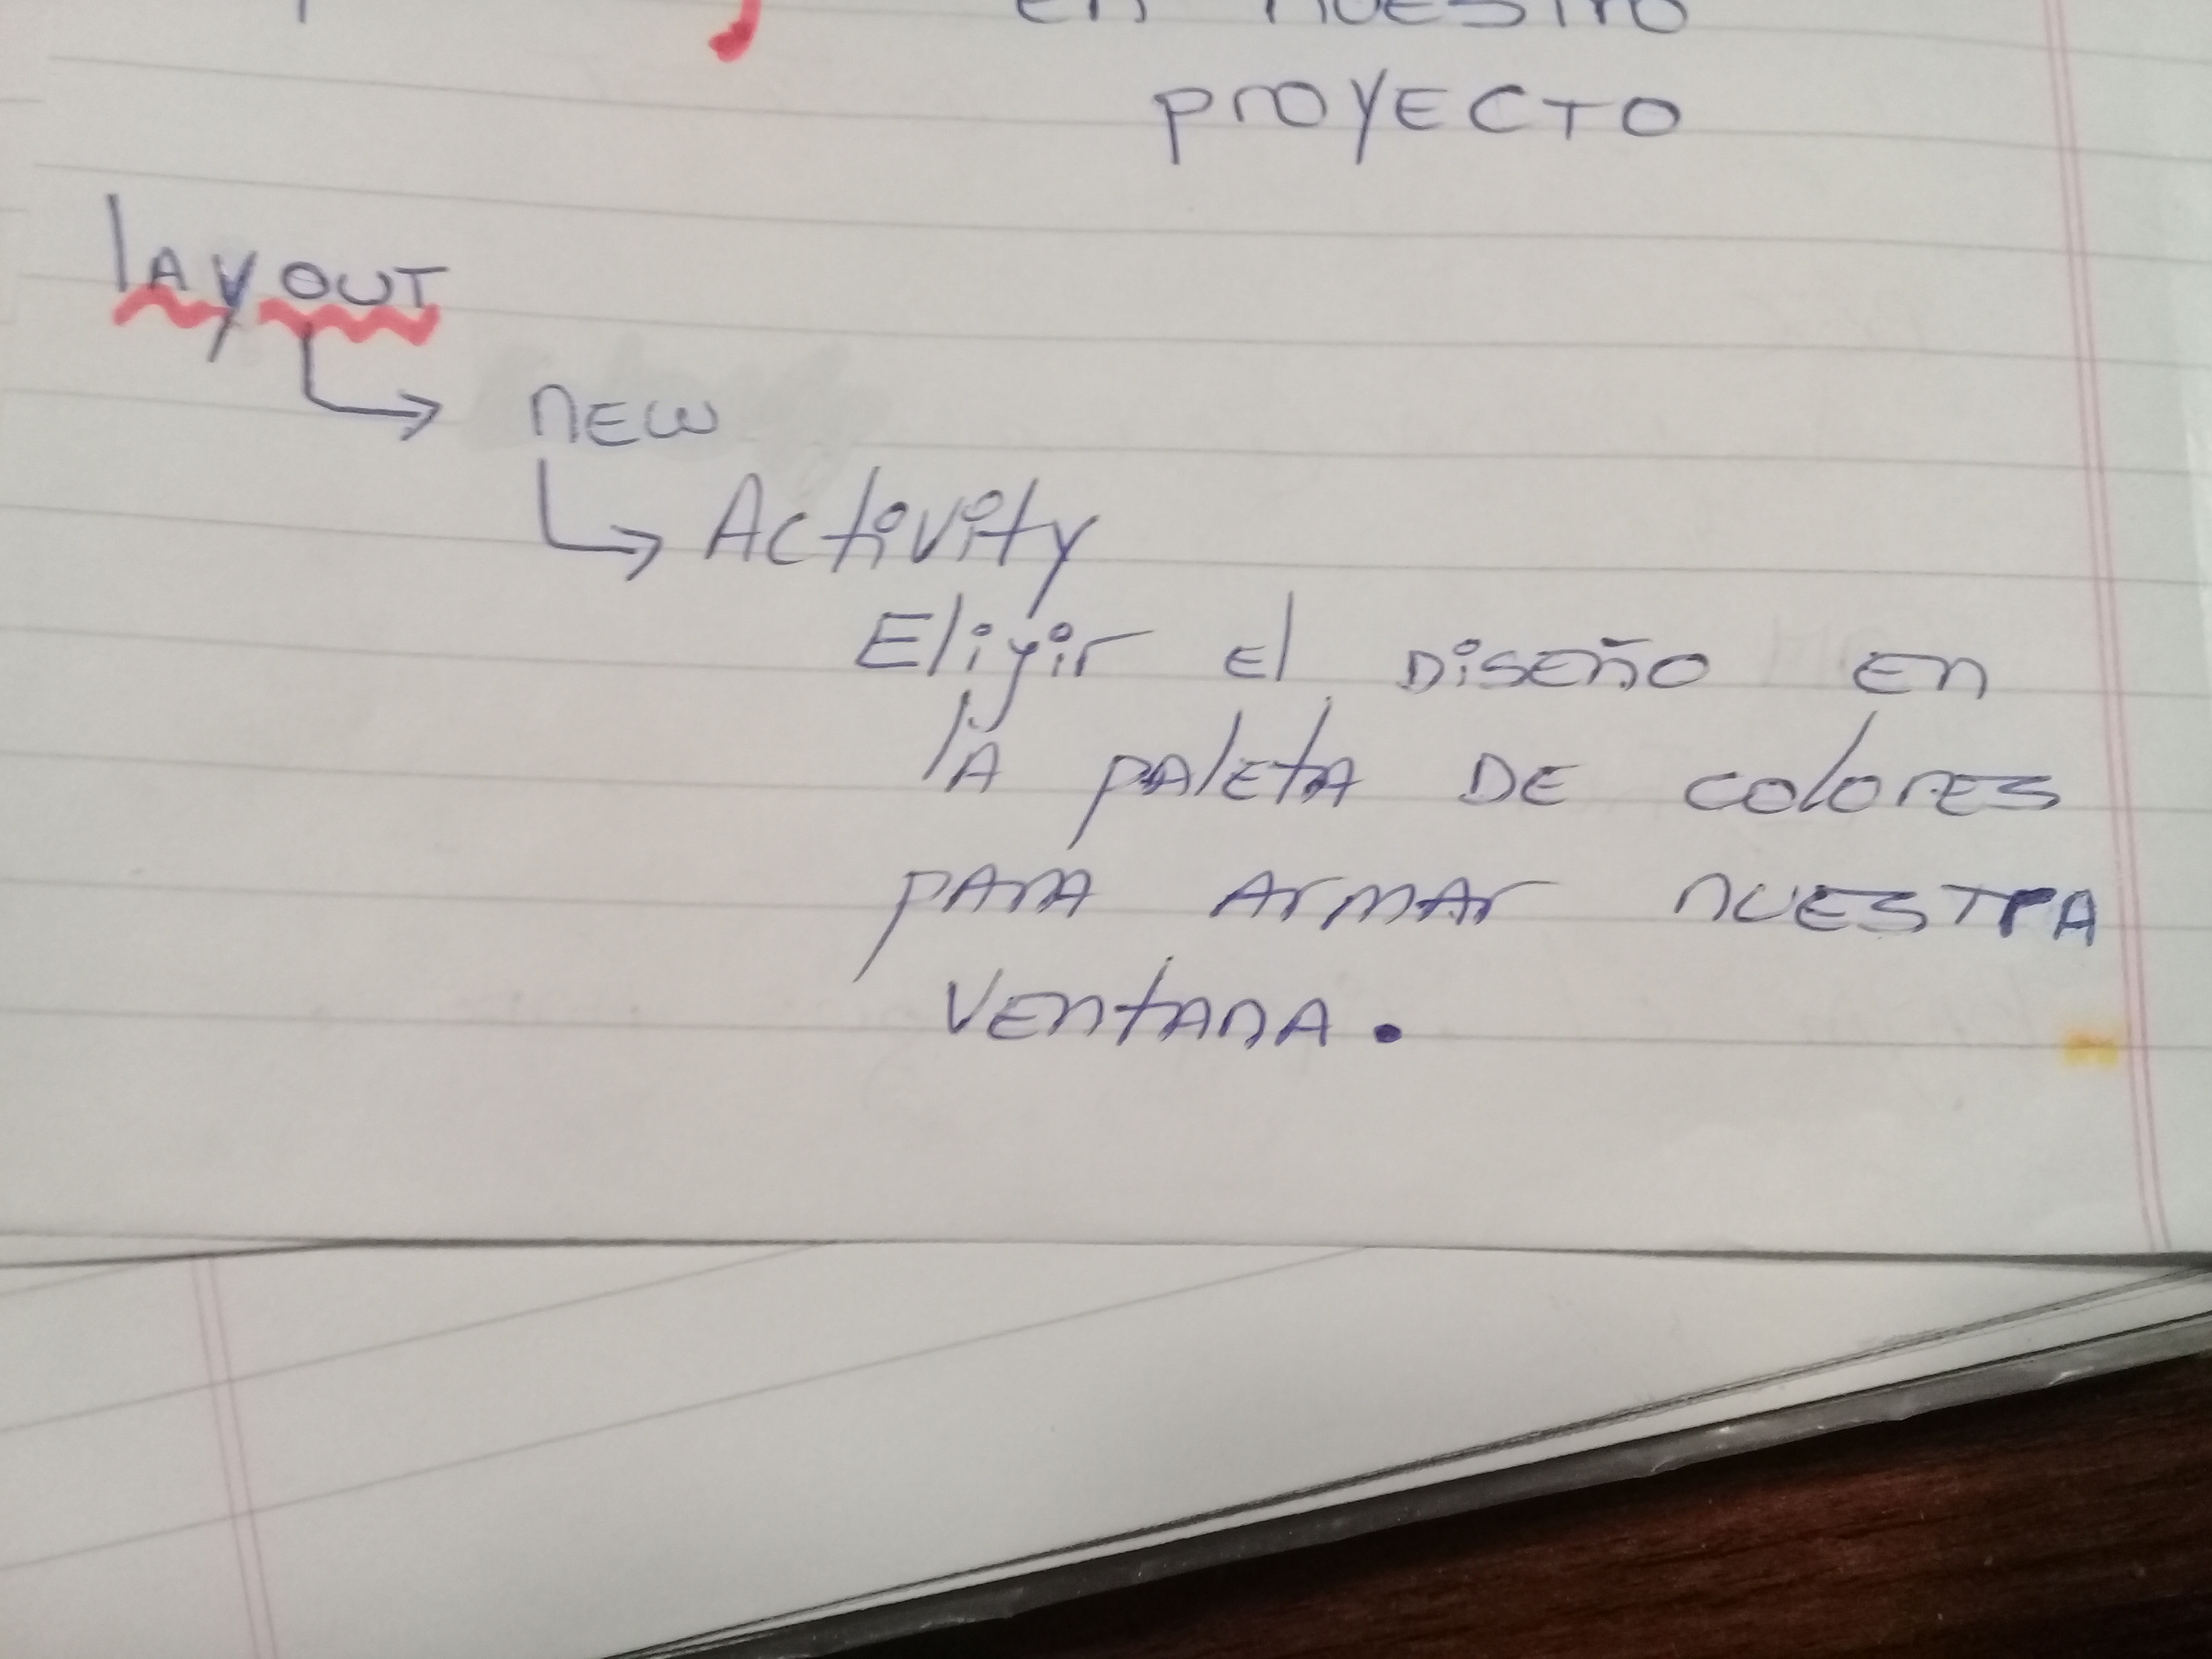 en nuestro
proyecto
layout
→ new
→ Activity
Eligir el diseño en
la paleta de colores
para armar nuestra
ventana.